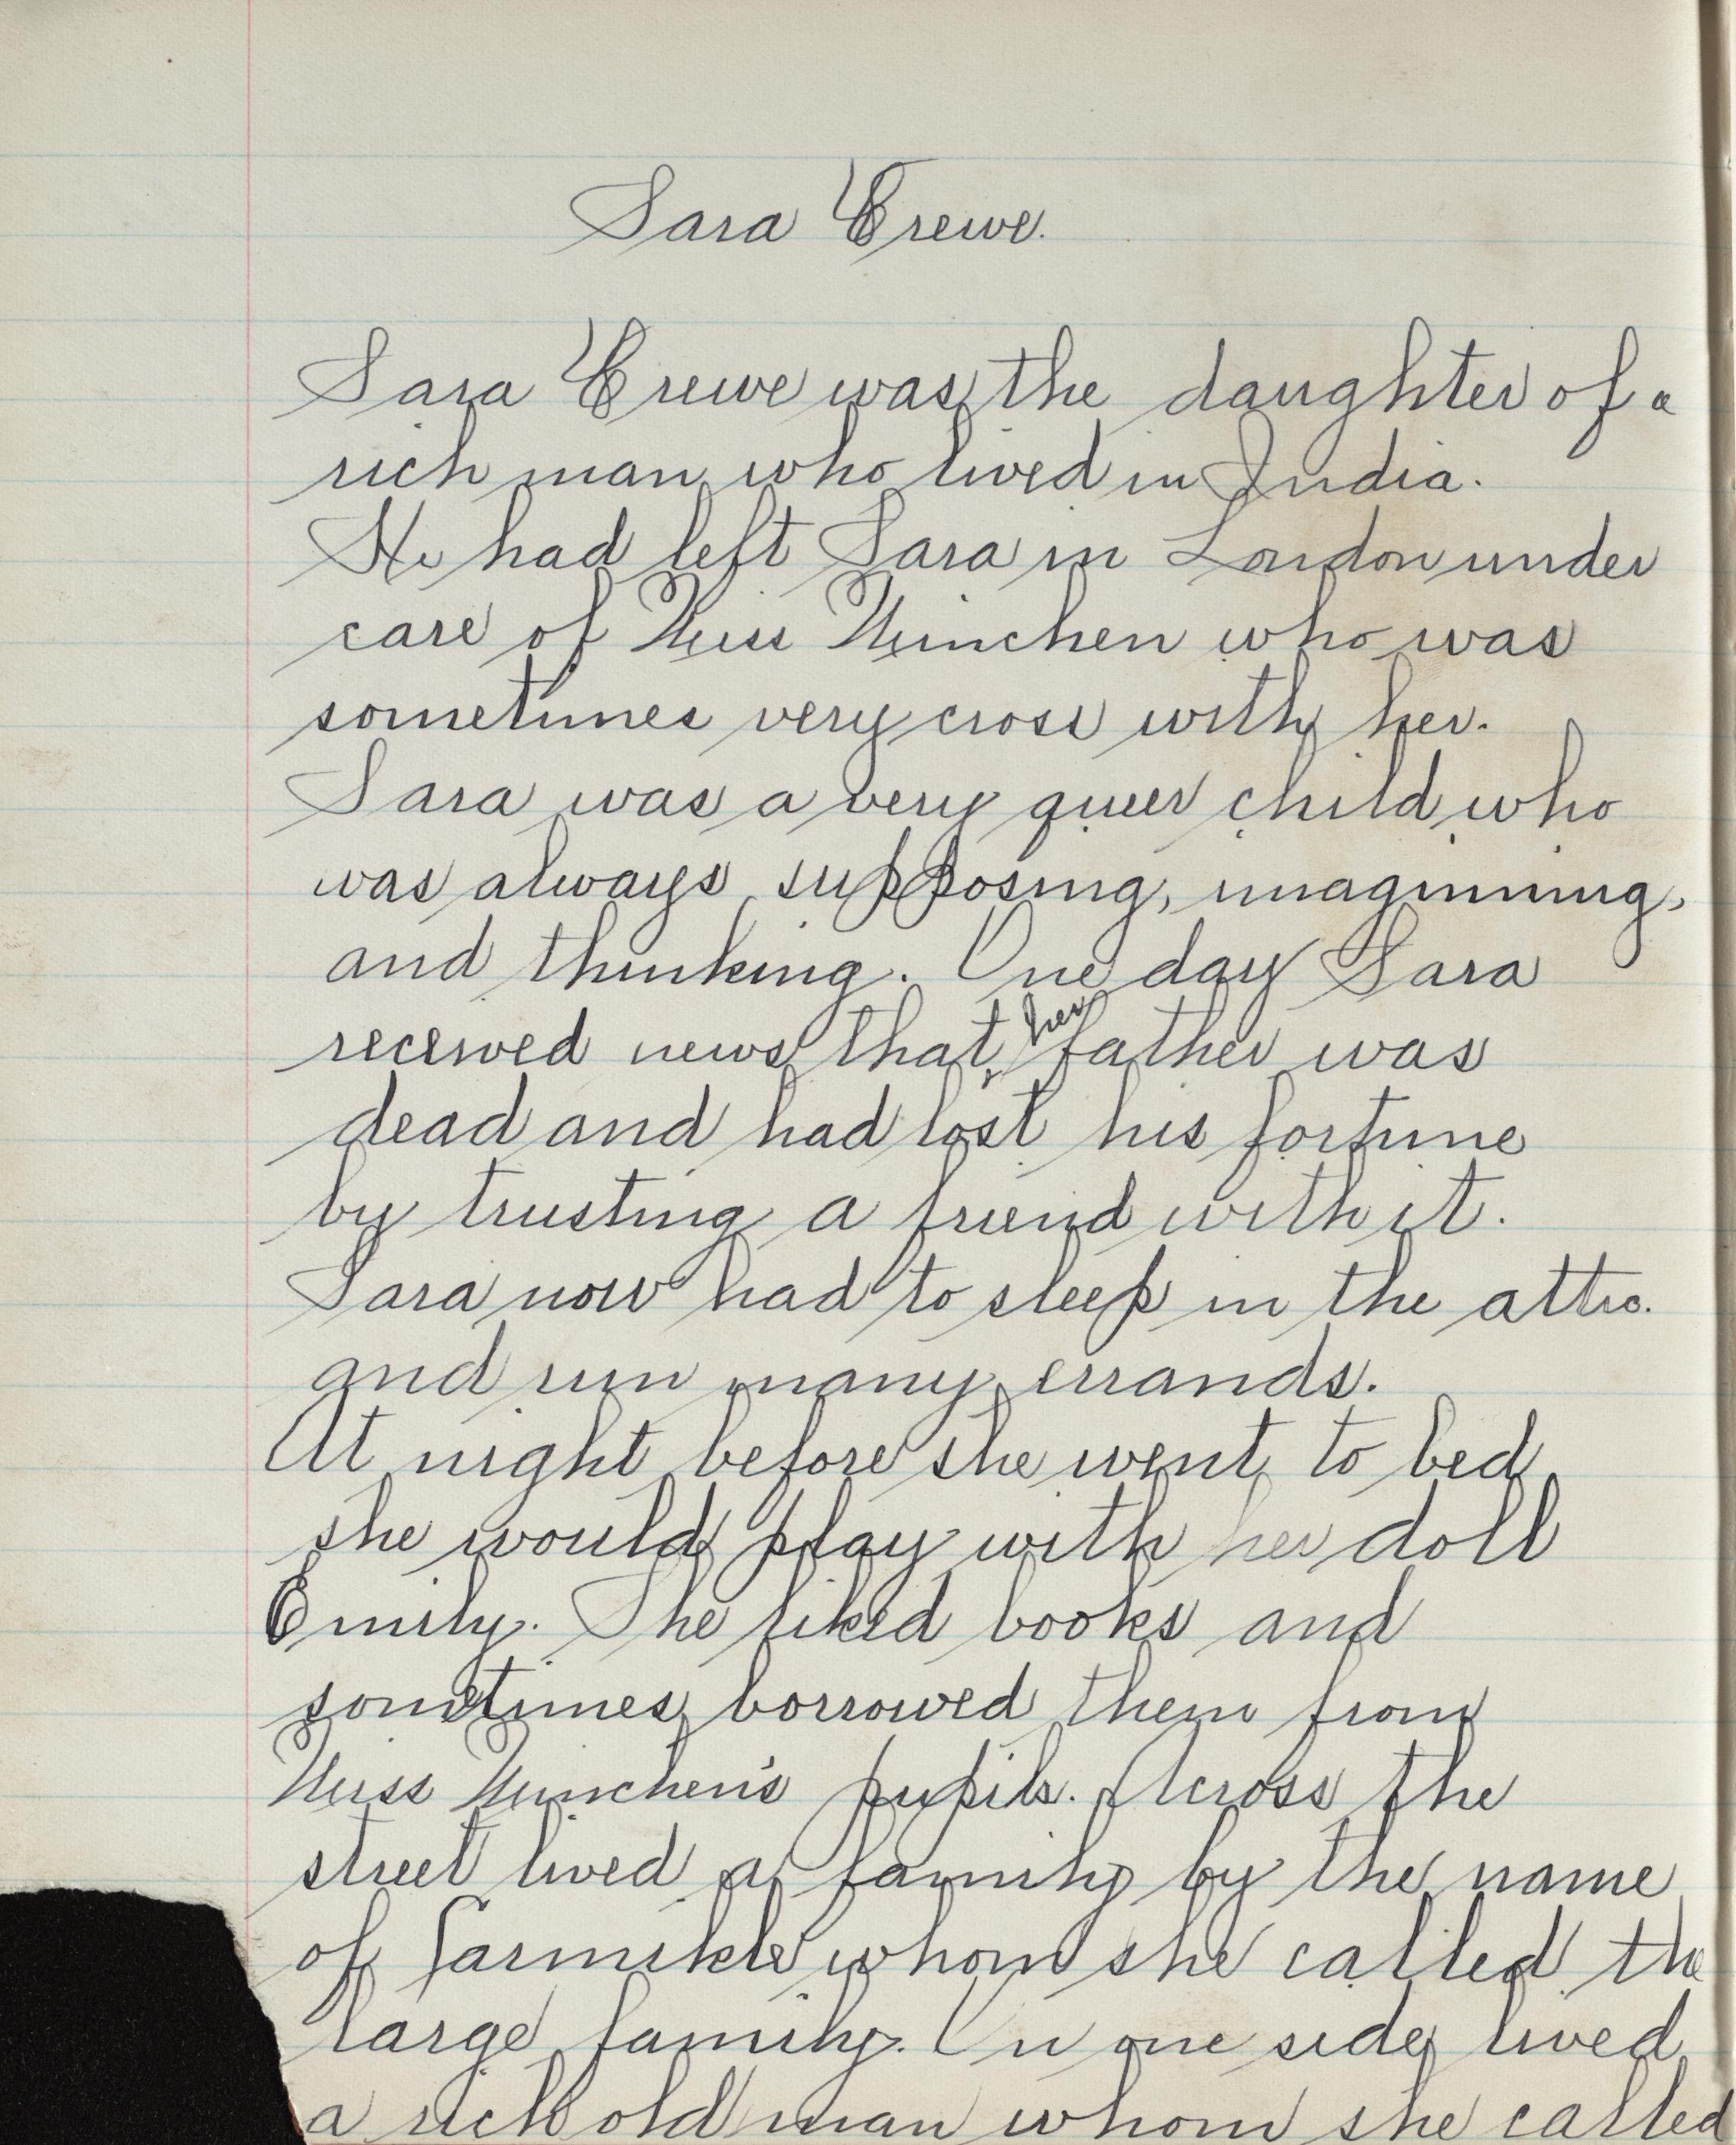 Sara Crewe.
Sara Crewe was the daughter of a
rich man who lived in India.
He had left Sara in London under
care of Miss Minchen who was
sometimes very cross with her.
Sara was a very queer child who
was always supposing, imagining,
and thinking. One day Sara
received news that her father was
dead and had lost his fortune
by trusting a friend with it.
Sara now had to sleep in the attic.
and run many errands.
At night before she went to bed
she would play with her doll
Emily. She liked books and
sometimes borrowed them from
Miss Minchen's pupils. Across the
street lived a family by the name
of Carmikle whom she called the
large family. On one side lived
a rich old man whom she called